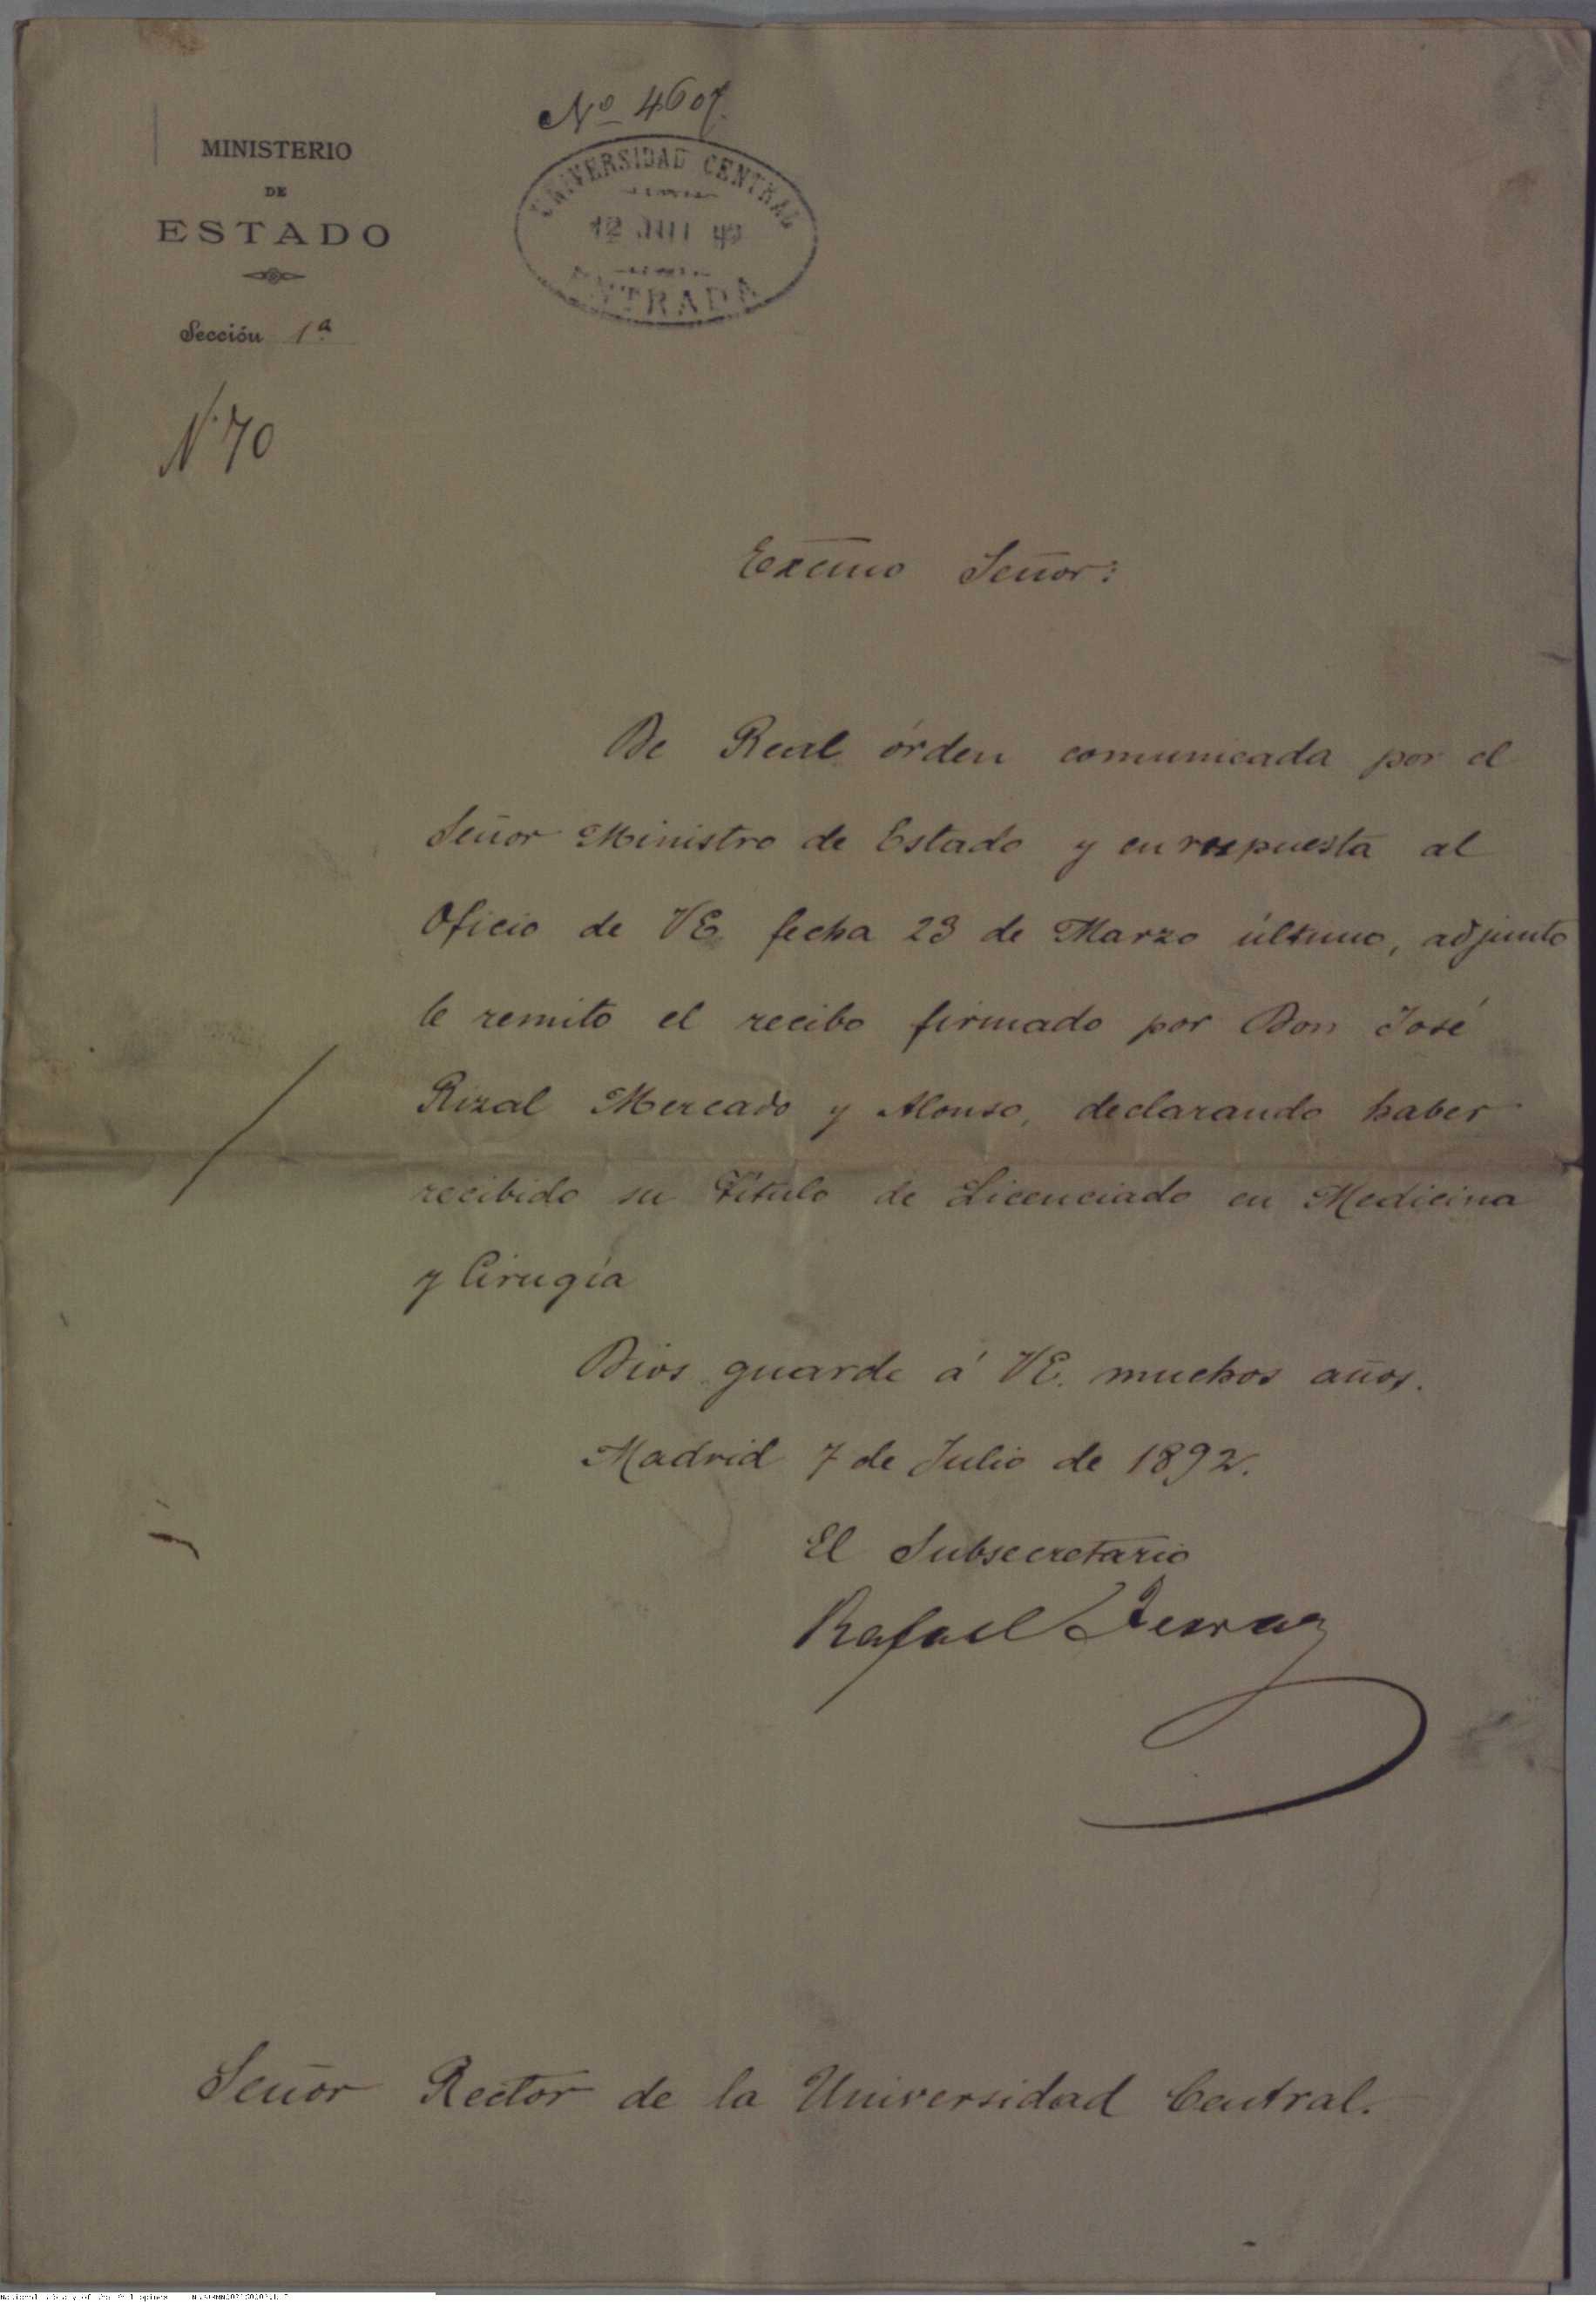 Nº 4607.
MINISTERIO
DE
ESTADO
Sección 1ª
UNIVERSIDAD CENTRAL
12 JUL 92
ENTRADA
N. 70
Excmo Señor:
De Real órden comunicada por el
Señor Ministro de Estado y en respuesta al
Oficio de VE. fecha 23 de Marzo último, adjunto
le remito el recibo firmado por Don José
Rizal Mercado y Alonso, declarando haber
recibido su Título de Licenciado en Medicina
y Cirugía
Dios guarde á VE. muchos años.
Madrid 7 de Julio de 1892.
El Subsecretario
Rafael Ferraz
Señor Rector de la Universidad Central.
National Library of the Philippines